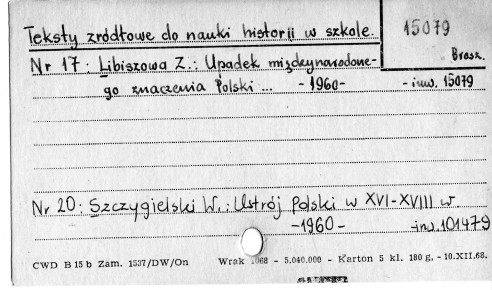 Teksty źródłowe do nauki historii w szkole.
15079
Brosz.
Nr 17: Libiszowa Z.: Upadek międzynarodowe-
go znaczenia Polski ... -1960- -inw. 15079
Nr 20: Szczygielski W.: Ustrój Polski w XVI-XVIII w
-1960- -inw. 101479
CWD B 15 b Zam. 1537/DW/On Wrak 1068 - 5.040.000 - Karton 5 kl. 180 g, - 10.XII.68.